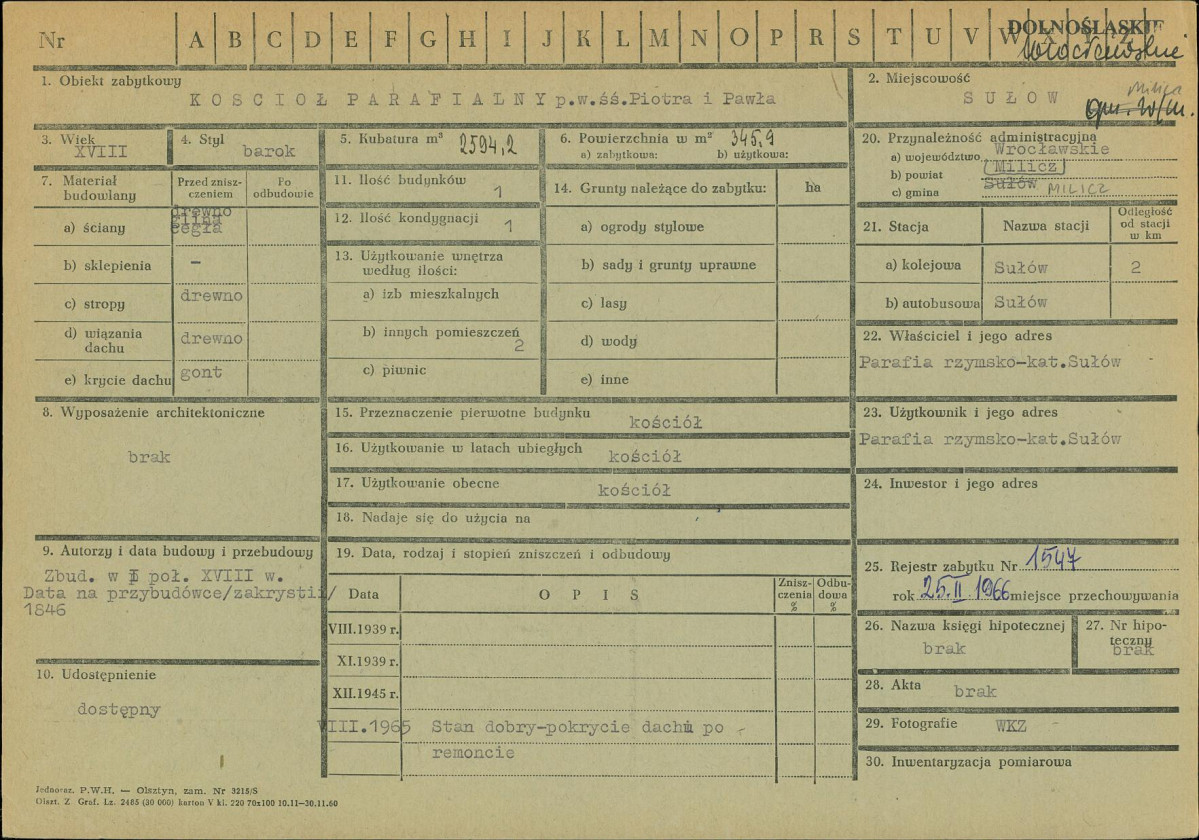 Nr A B C D E F G H I J K L M N O P R S T U V W
DOLNOŚLĄSKIE
Wrocławskie
1. Obiekt zabytkowy
KOŚCIOŁ PARAFIALNY p.w.śś.Piotra i Pawła
2. Miejscowość
SUŁÓW
Milicz
gm. w/m.
3. Wiek
XVIII
4. Styl
barok
5. Kubatura m³ 2594,2
6. Powierzchnia w m² 345,9
a) zabytkowa: b) użytkowa:
7. Materiał budowlany
Przed zniszczeniem
Po odbudowie
a) ściany
drewno
glina
cegła
b) sklepienia –
c) stropy drewno
d) wiązania dachu drewno
e) krycie dachu gont
8. Wyposażenie architektoniczne
brak
9. Autorzy i data budowy i przebudowy
Zbud. w I poł. XVIII w.
Data na przybudówce/zakrystii/
1846
10. Udostępnienie
dostępny
11. Ilość budynków 1
12. Ilość kondygnacji 1
13. Użytkowanie wnętrza
według ilości:
a) izb mieszkalnych
b) innych pomieszczeń
2
c) piwnic
14. Grunty należące do zabytku: ha
a) ogrody stylowe
b) sady i grunty uprawne
c) lasy
d) wody
e) inne
15. Przeznaczenie pierwotne budynku kościół
16. Użytkowanie w latach ubiegłych kościół
17. Użytkowanie obecne kościół
18. Nadaje się do użycia na
19. Data, rodzaj i stopień zniszczeń i odbudowy
Data OPIS Zniszczenia % Odbudowa %
VIII.1939 r.
XI.1939 r.
XII.1945 r.
VIII.1965 Stan dobry-pokrycie dachu po
remoncie
20. Przynależność administracyjna
a) województwo Wrocławskie
b) powiat Milicz
c) gmina Sułów MILICZ
21. Stacja Nazwa stacji Odległość od stacji w km
a) kolejowa Sułów 2
b) autobusowa Sułów
22. Właściciel i jego adres
Parafia rzymsko-kat.Sułów
23. Użytkownik i jego adres
Parafia rzymsko-kat.Sułów
24. Inwestor i jego adres
25. Rejestr zabytku Nr 1547
rok 25.II 1966 miejsce przechowywania
26. Nazwa księgi hipotecznej
brak
27. Nr hipoteczny
brak
28. Akta brak
29. Fotografie WKZ
30. Inwentaryzacja pomiarowa
Jednoraz. P.W.H. — Olsztyn, zam. Nr 3215/S
Olszt. Z. Graf. Lz. 2485 (30 000) karton V kl. 220 70x100 10.11—30.11.60